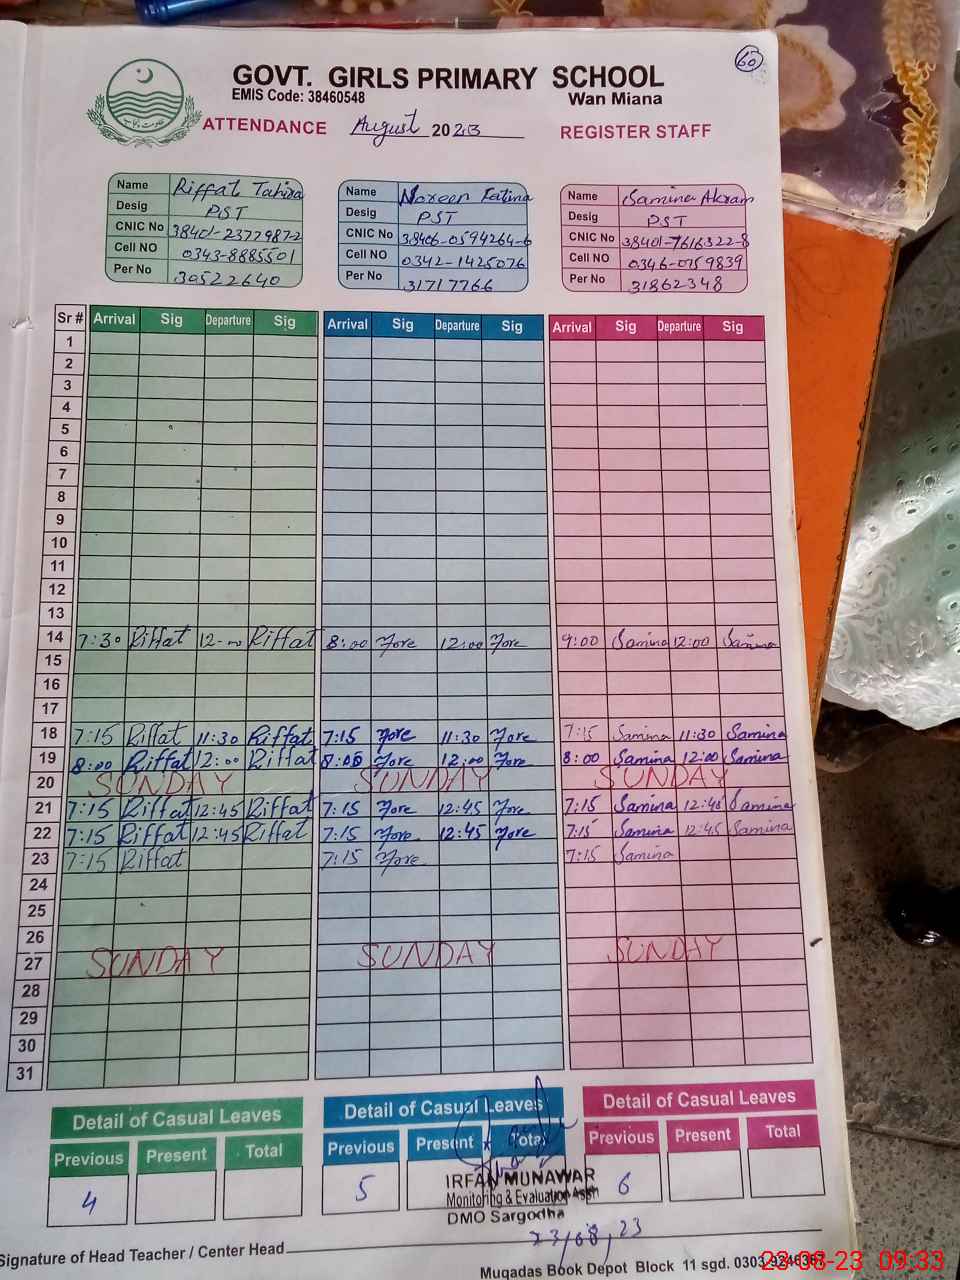 60
GOVT. GIRLS PRIMARY SCHOOL
EMIS Code: 38460548 Wan Miana
ATTENDANCE August 2023 REGISTER STAFF
Name Riffat Tahira Name Noreen Fatima Name Samina Akram
Desig PST Desig PST Desig PST
CNIC No 38401-2377987-2 CNIC No 38406-0594264-6 CNIC No 38401-7616322-8
Cell NO 0343-8885501 Cell NO 0342-1425076 Cell NO 0346-0759839
Per No 30522640 Per No 31717766 Per No 31862348
Sr # Arrival Sig Departure Sig Arrival Sig Departure Sig Arrival Sig Departure Sig
1
2
3
4
5
6
7
8
9
10
11
12
13
14 7:30 Riffat 12-00 Riffat 8:00 12:00 9:00 Samina 12:00 Samina
15
16
17
18 7:15 Riffat 11:30 Riffat 7:15 11:30 7:15 Samina 11:30 Samina
19 8:00 Riffat 12:00 Riffat 8:00 12:00 8:00 Samina 12:00 Samina
20 SUNDAY SUNDAY SUNDAY
21 7:15 Riffat 12:45 Riffat 7:15 12:45 7:15 Samina 12:45 Samina
22 7:15 Riffat 12:45 Riffat 7:15 12:45 7:15 Samina 12:45 Samina
23 7:15 Riffat 7:15 7:15 Samina
24
25
26
27 SUNDAY SUNDAY SUNDAY
28
29
30
31
Detail of Casual Leaves Detail of Casual Leaves Detail of Casual Leaves
Previous Present Total Previous Present Total Previous Present Total
4 5 6
IRFAN MUNAWAR
Monitoring & Evaluation Asstt
DMO Sargodha
23/08/23
Signature of Head Teacher / Center Head
Muqadas Book Depot Block 11 sgd. 0303
23-08-23 09:33